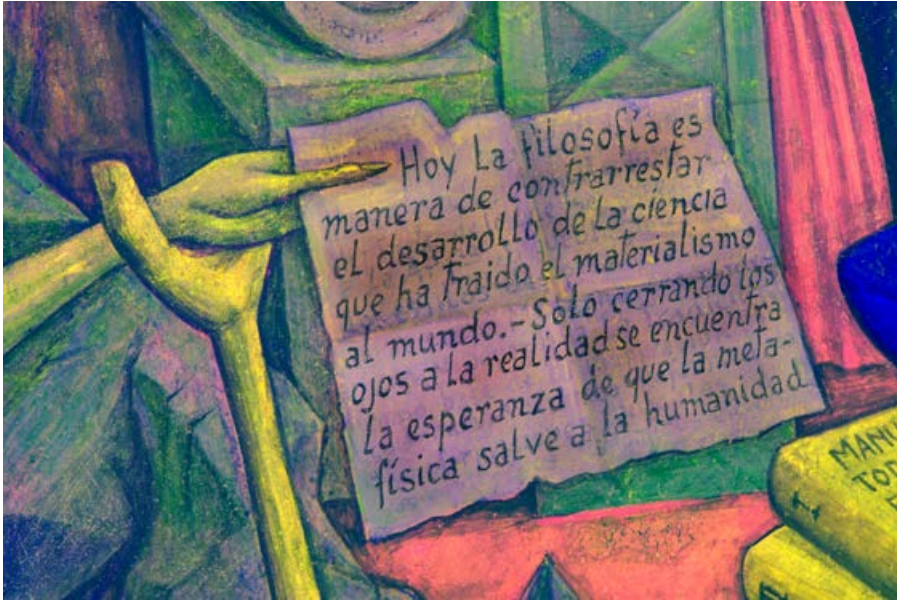 Hoy La filosofía es
manera de contrarrestar
el desarrollo de la ciencia
que ha traido el materialismo
al mundo.- Solo cerrando los
ojos a la realidad se encuentra
la esperanza de que la meta-
física salve a la humanidad
I